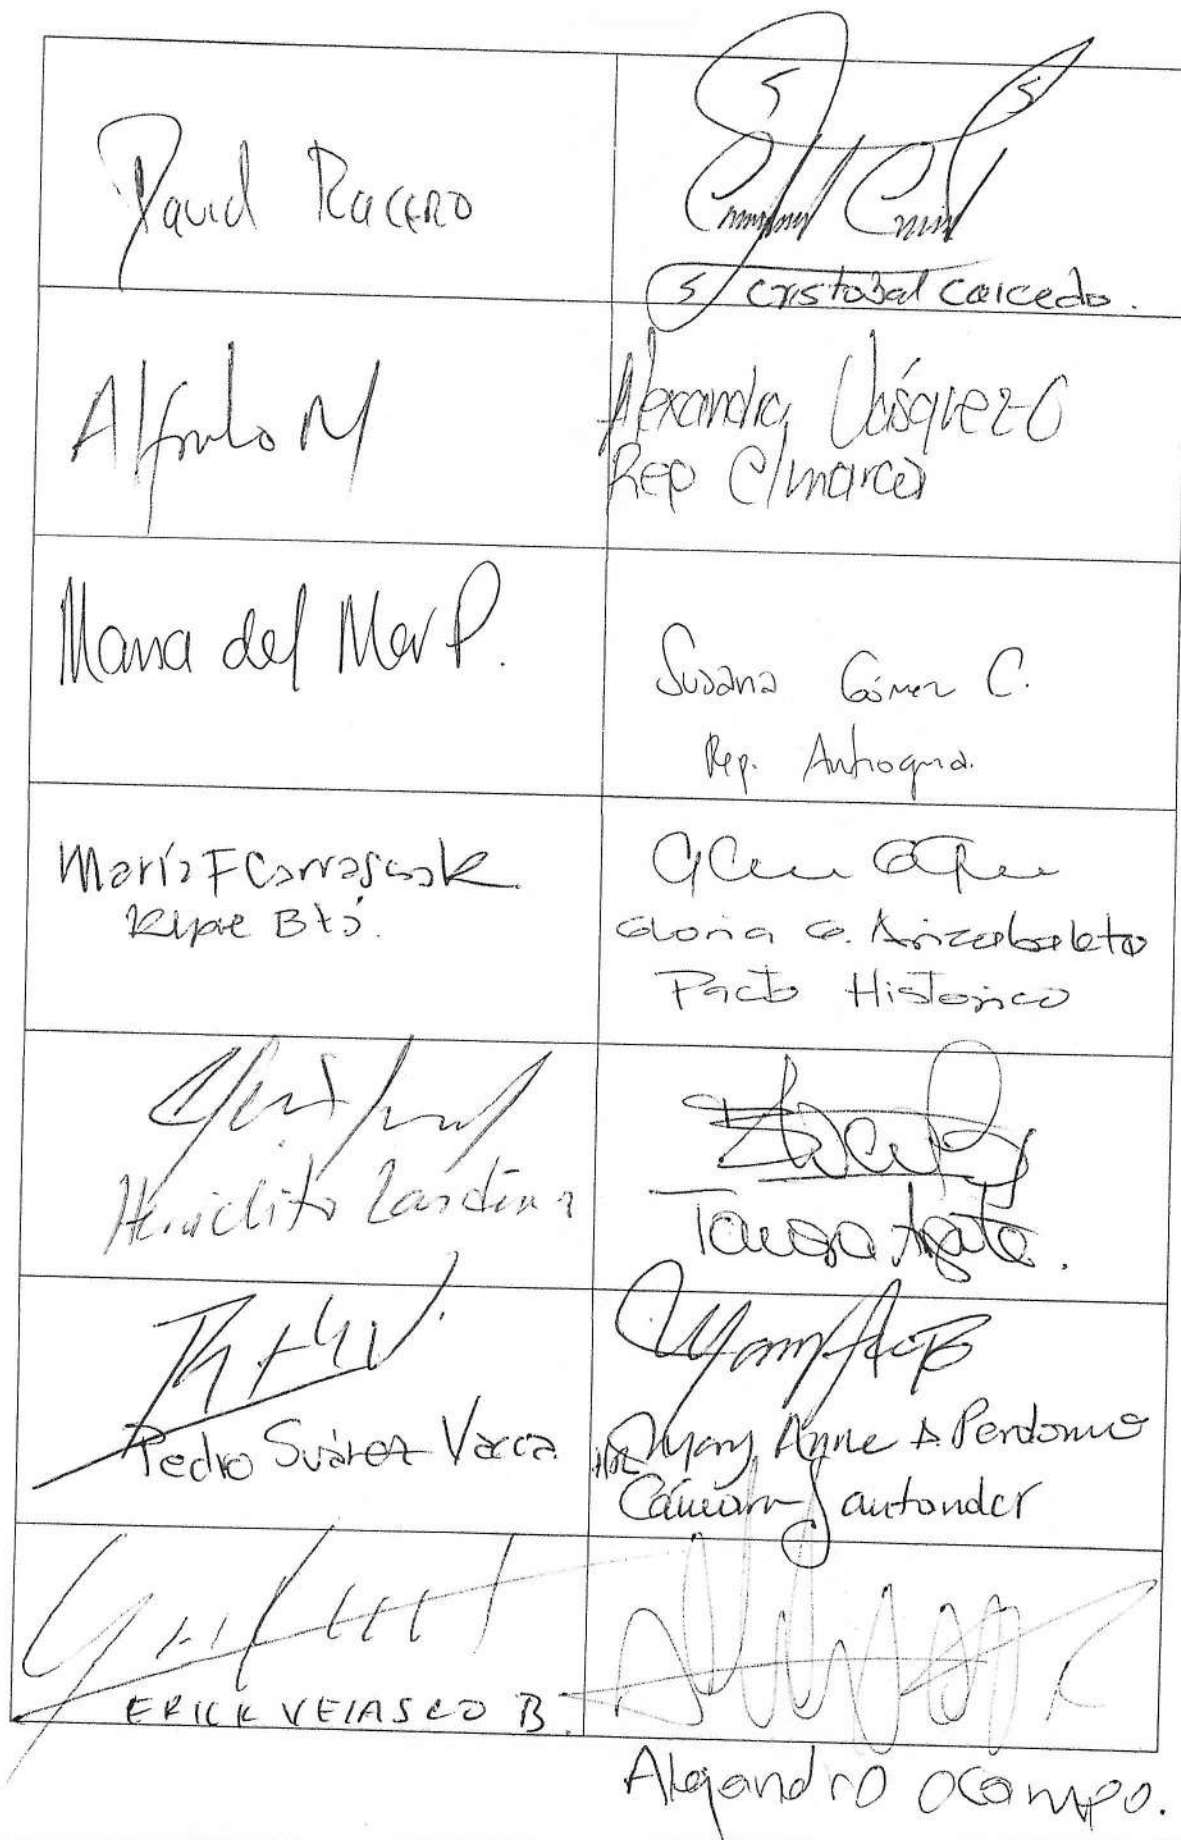 David Racero
Cristobal Caicedo.
Alfredo M
Alexandra Vásquez O
Rep C/marca
Maria del Mar P.
Susana Gómez C.
Rep. Antioquia.
María F Carrascal R.
Bta.
Gloria E. Arizabaleta
Pacto Historico
Heraclito Landinez
Tamara Argote.
Pedro Suárez Vacca
Mary Anne A. Perdomo
Cámara Santander
ERICK VELASCO B.
Alejandro Ocampo.